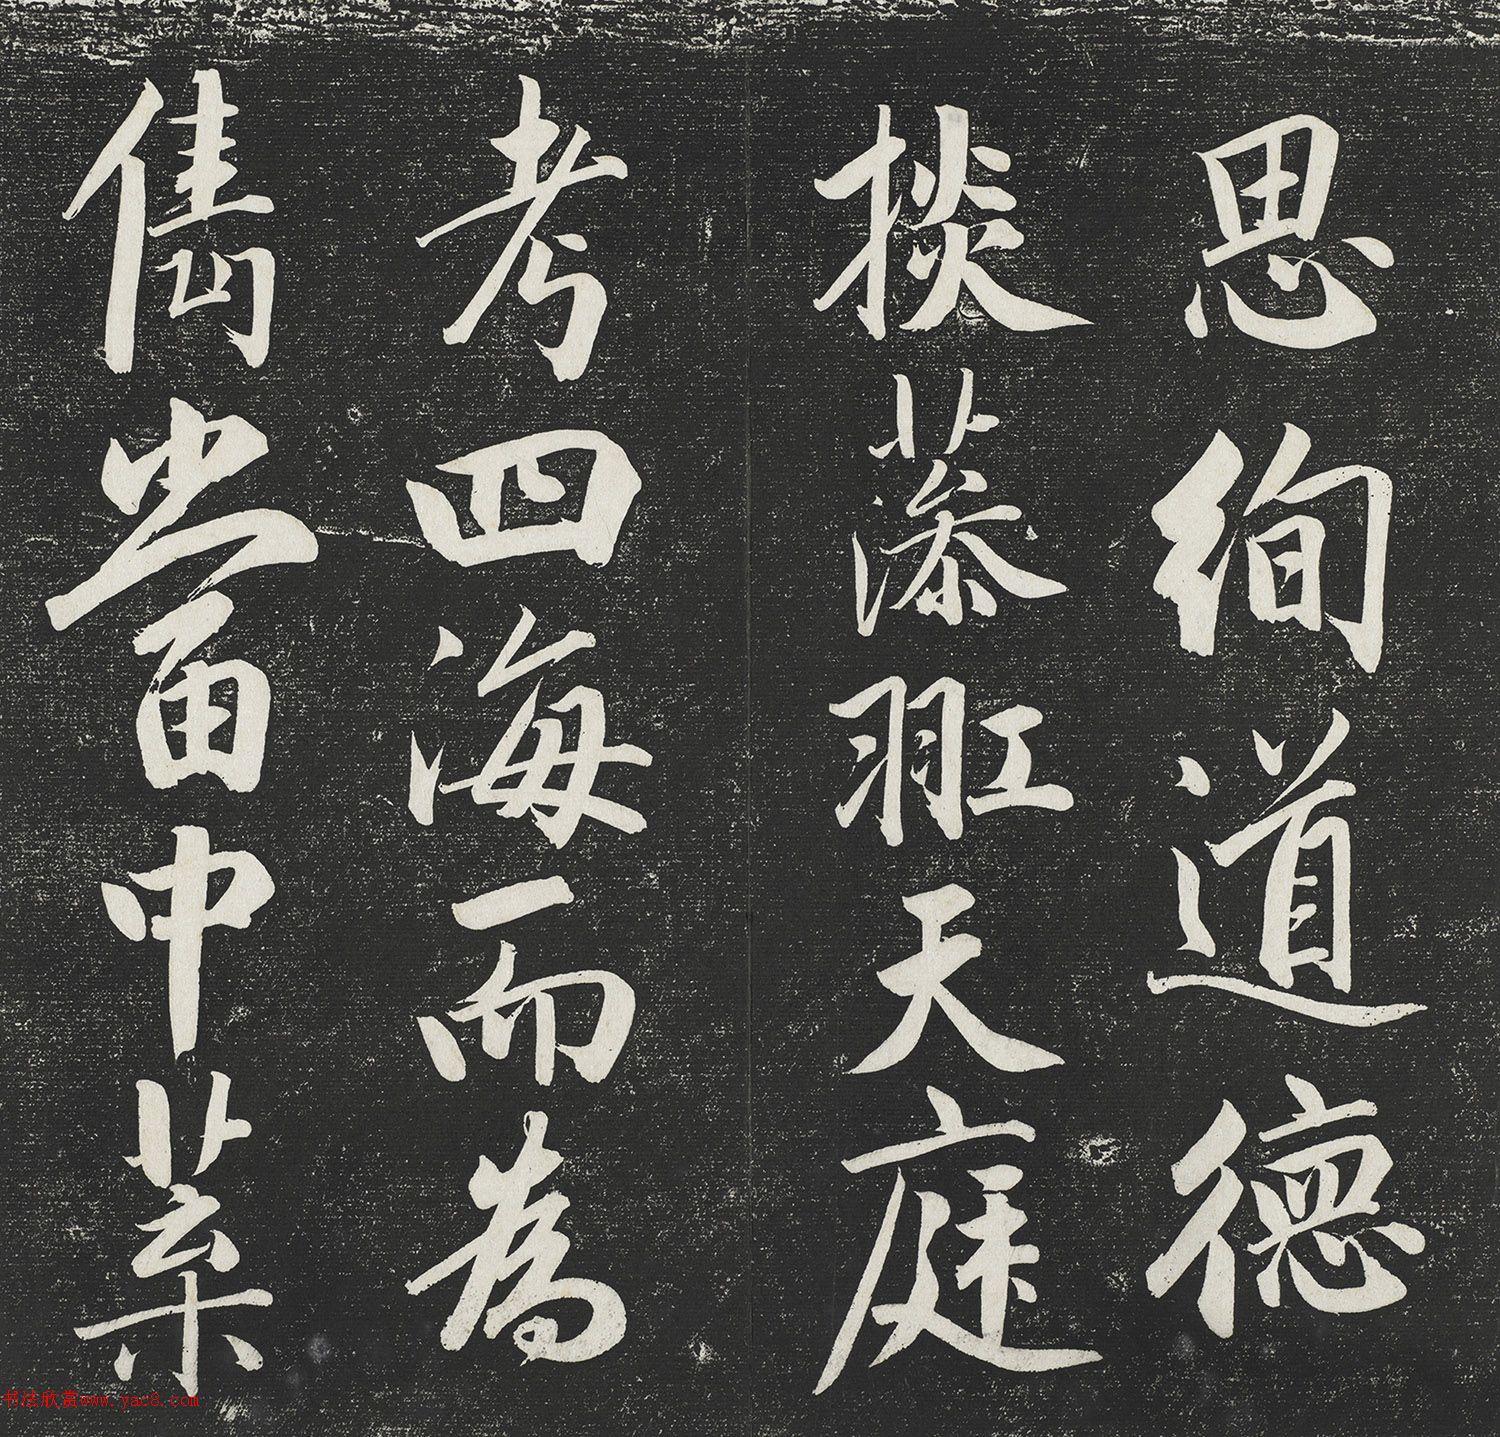 思絢道德
掞藻羾天庭
考四海而為
雋當中葉
书法欣赏www.yac8.com